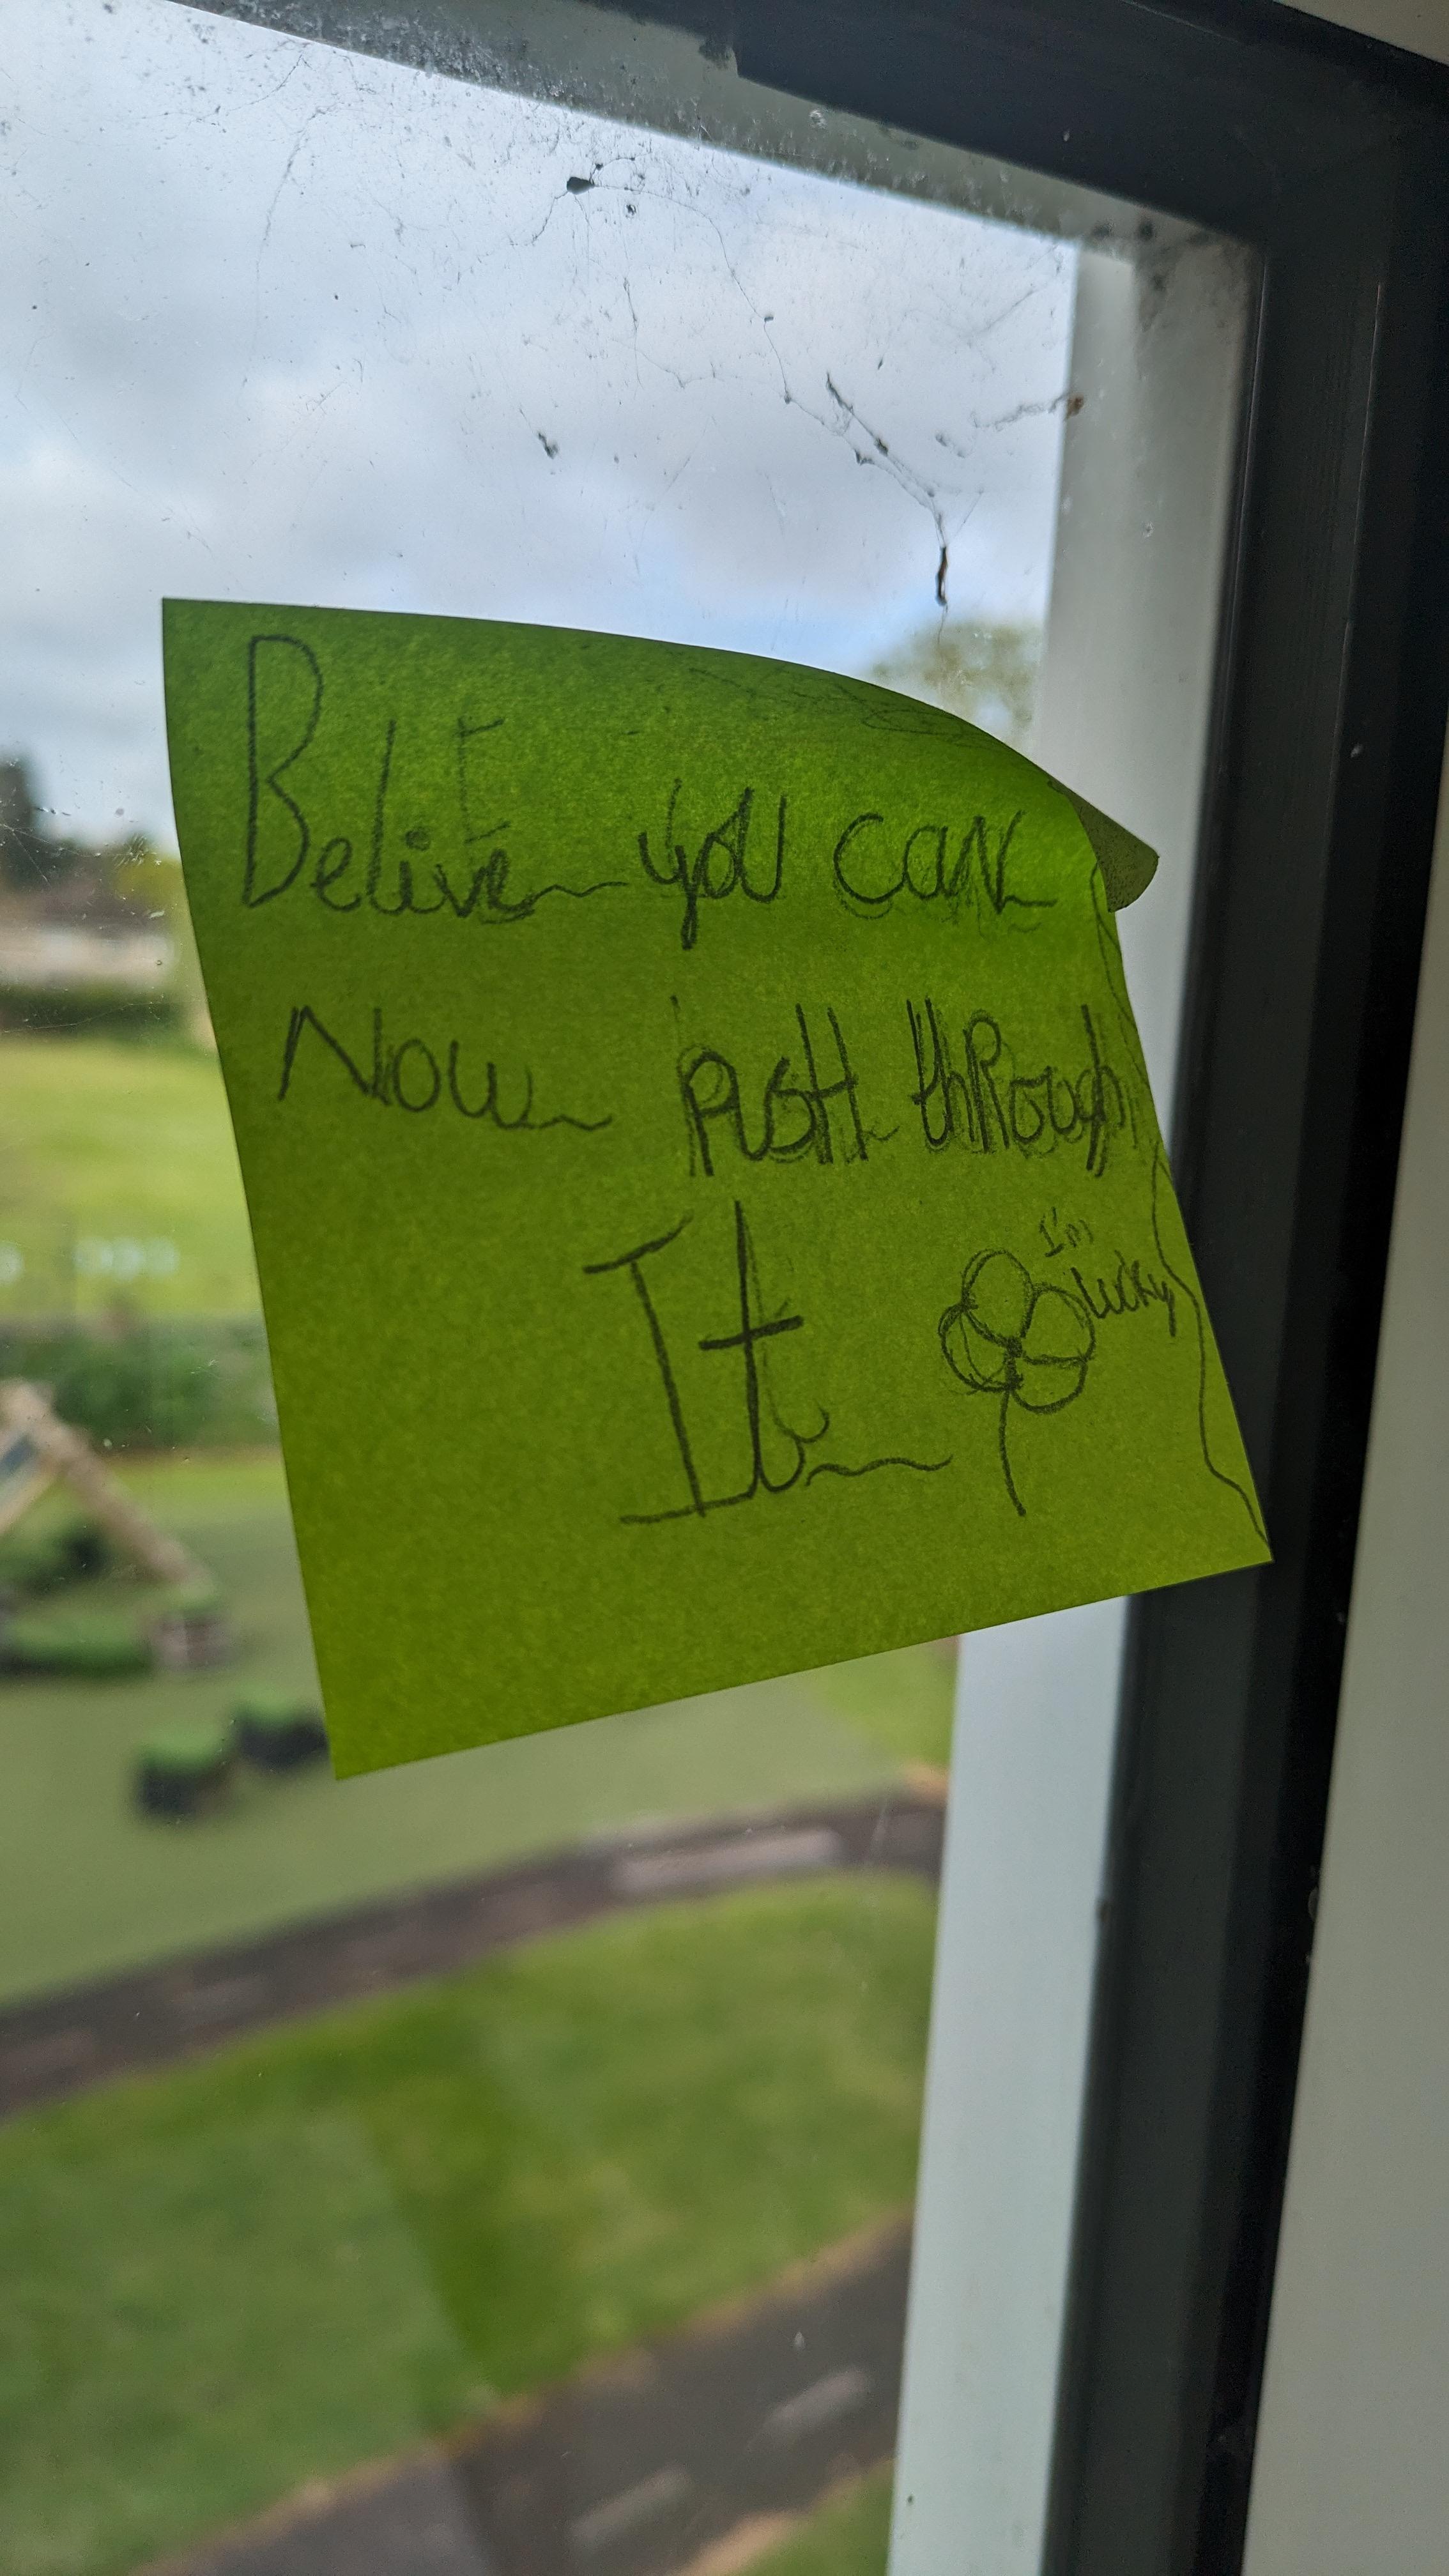 Belive you can
Now push through
It
I'm
lucky